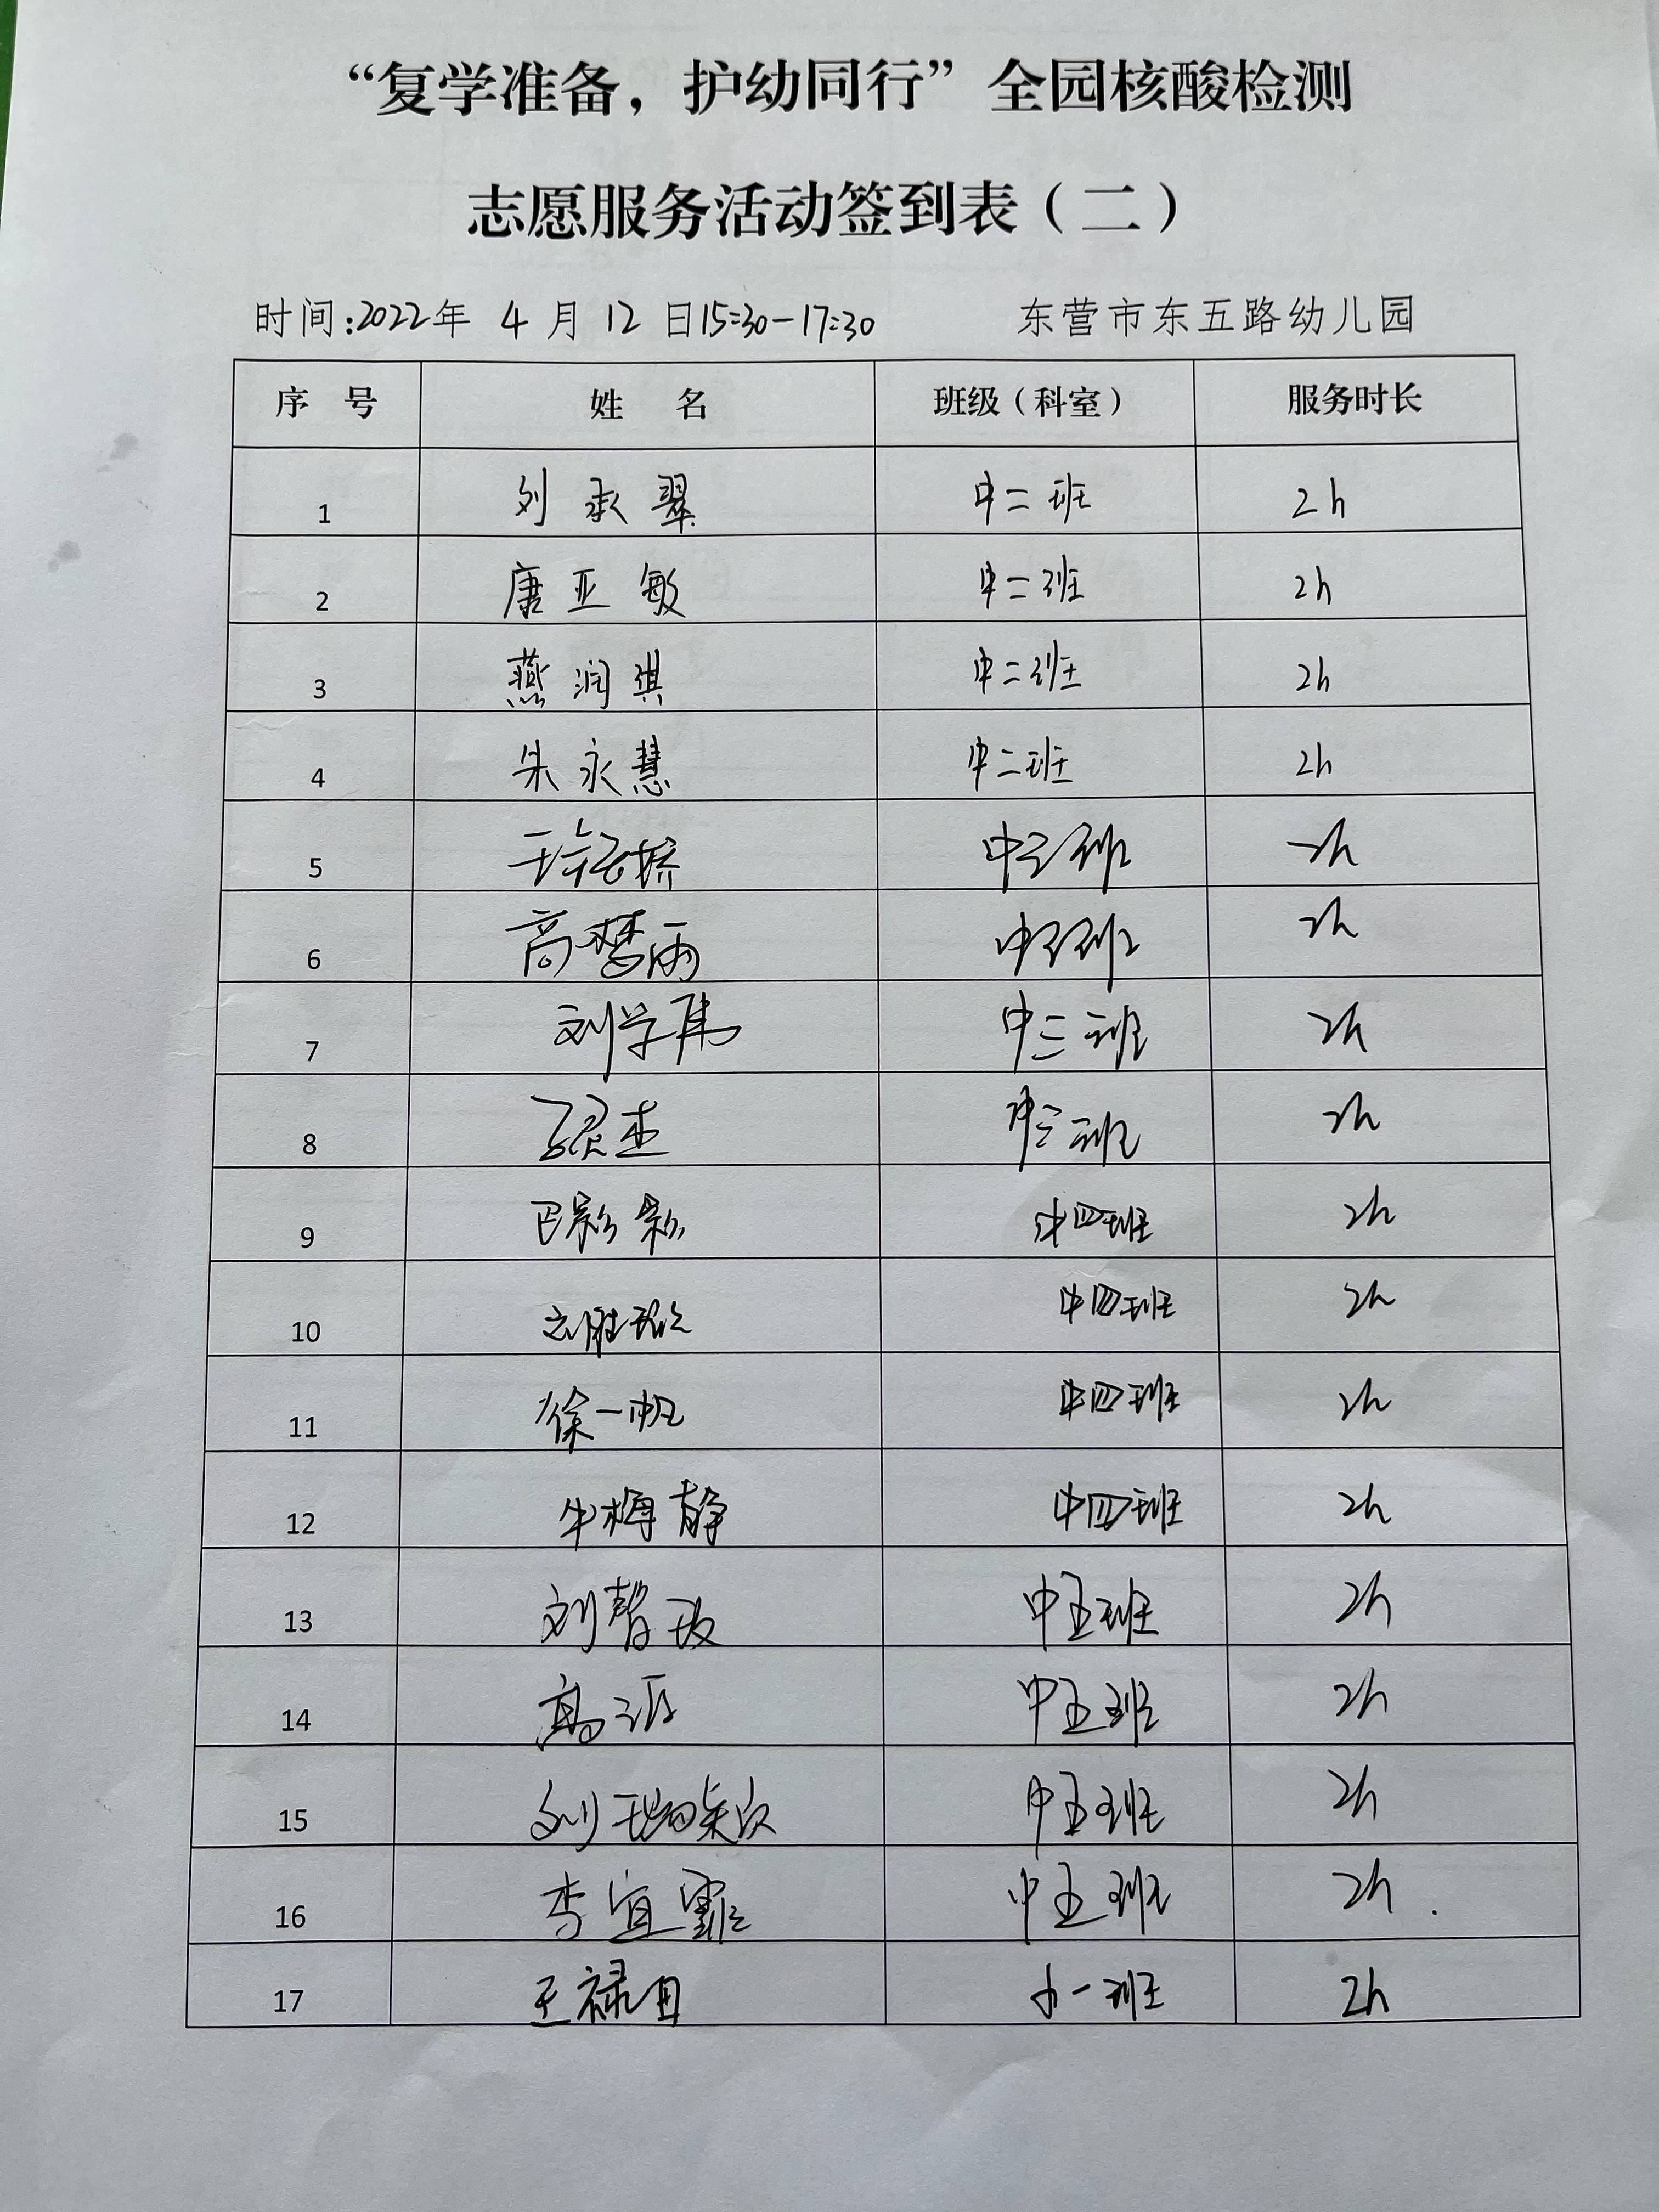 “复学准备，护幼同行”全园核酸检测
志愿服务活动签到表（二）
时间:2022年 4 月 12 日15:30-17:30 东营市东五路幼儿园
序 号 姓 名 班级（科室） 服务时长
1 刘承翠 中二班 2h
2 唐亚敏 中二班 2h
3 燕润琪 中二班 2h
4 朱永慧 中二班 2h
5 中三班 2h
6 高梦雨 中三班 2h
7 刘学伟 中三班 2h
8 中三班 2h
9 巴彩彩 中四班 2h
10 中四班 2h
11 徐一帆 中四班 2h
12 牛梅静 中四班 2h
13 刘智玫 中五班 2h
14 中五班 2h
15 刘瑞颖 中五班 2h
16 李宜霏 中五班 2h
17 王禄日 小一班 2h